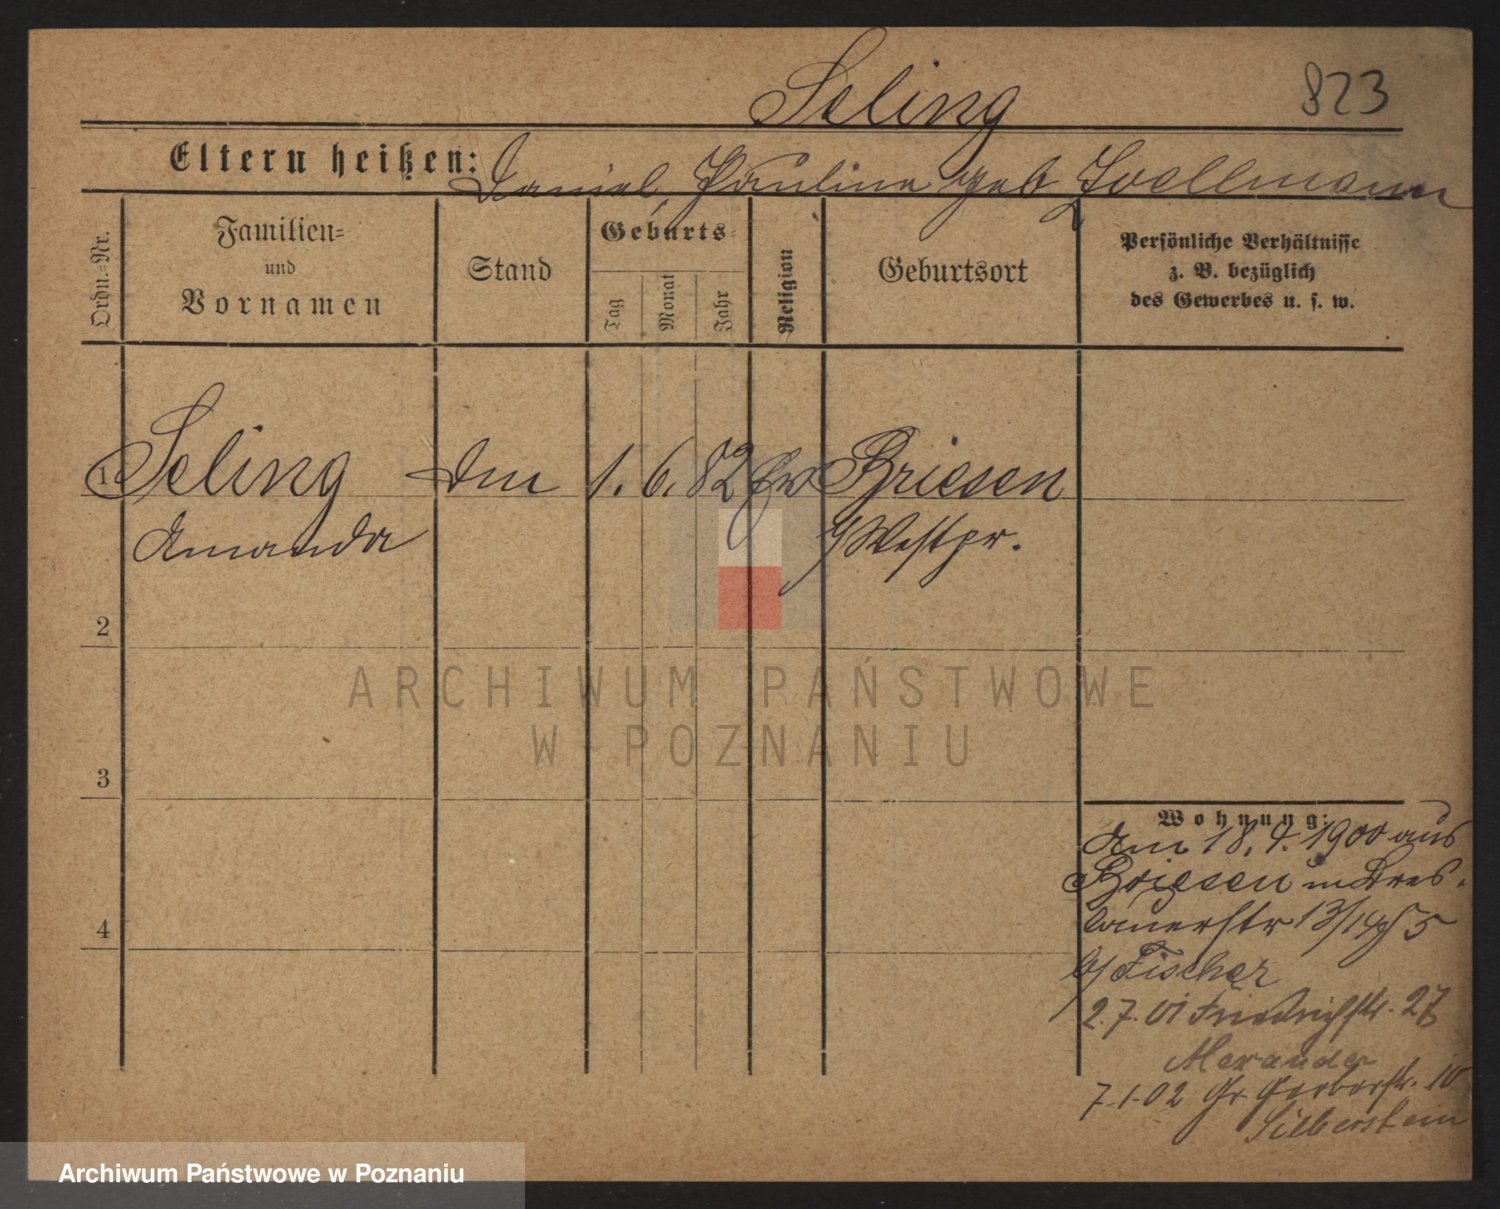 Seling
823
Eltern heißen: Daniel, Pauline geb Zoellmann
Ordn.=Nr.
Familien=
und
Vornamen
Stand
Geburts=
Tag
Monat
Jahr
Religion
Geburtsort
Persönliche Verhältnisse
z. B. bezüglich
des Gewerbes u. s. w.
1 Seling 1. 6. 82 Ev Briesen
Amanda Westpr.
2
ARCHIWUM PAŃSTWOWE
W POZNANIU
3
4
Wohnung:
Am 18. 4. 1900 aus
Briesen n Bres-
lauerstr 13/14
b/ Fischer
2.7.01 Friedrichstr. 27
Alexander
7.1.02 Gr. Gerberstr. 10
Silberstein
Archiwum Państwowe w Poznaniu